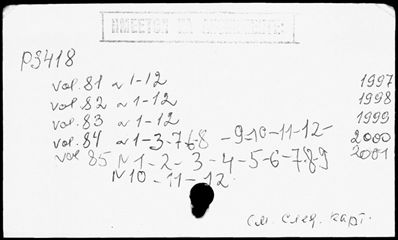 ИМЕЕТСЯ
РЗ418
vol. 81 N 1-12 1997
vol. 82 N 1-12 1998
vol. 83 N 1-12 1999
vol. 84 N 1-3-7-6-8 -9-10-11-12- 2000
vol 85 N 1-2-3-4-5-6-7-8-9 2001
N 10-11-12
См. след. карт.